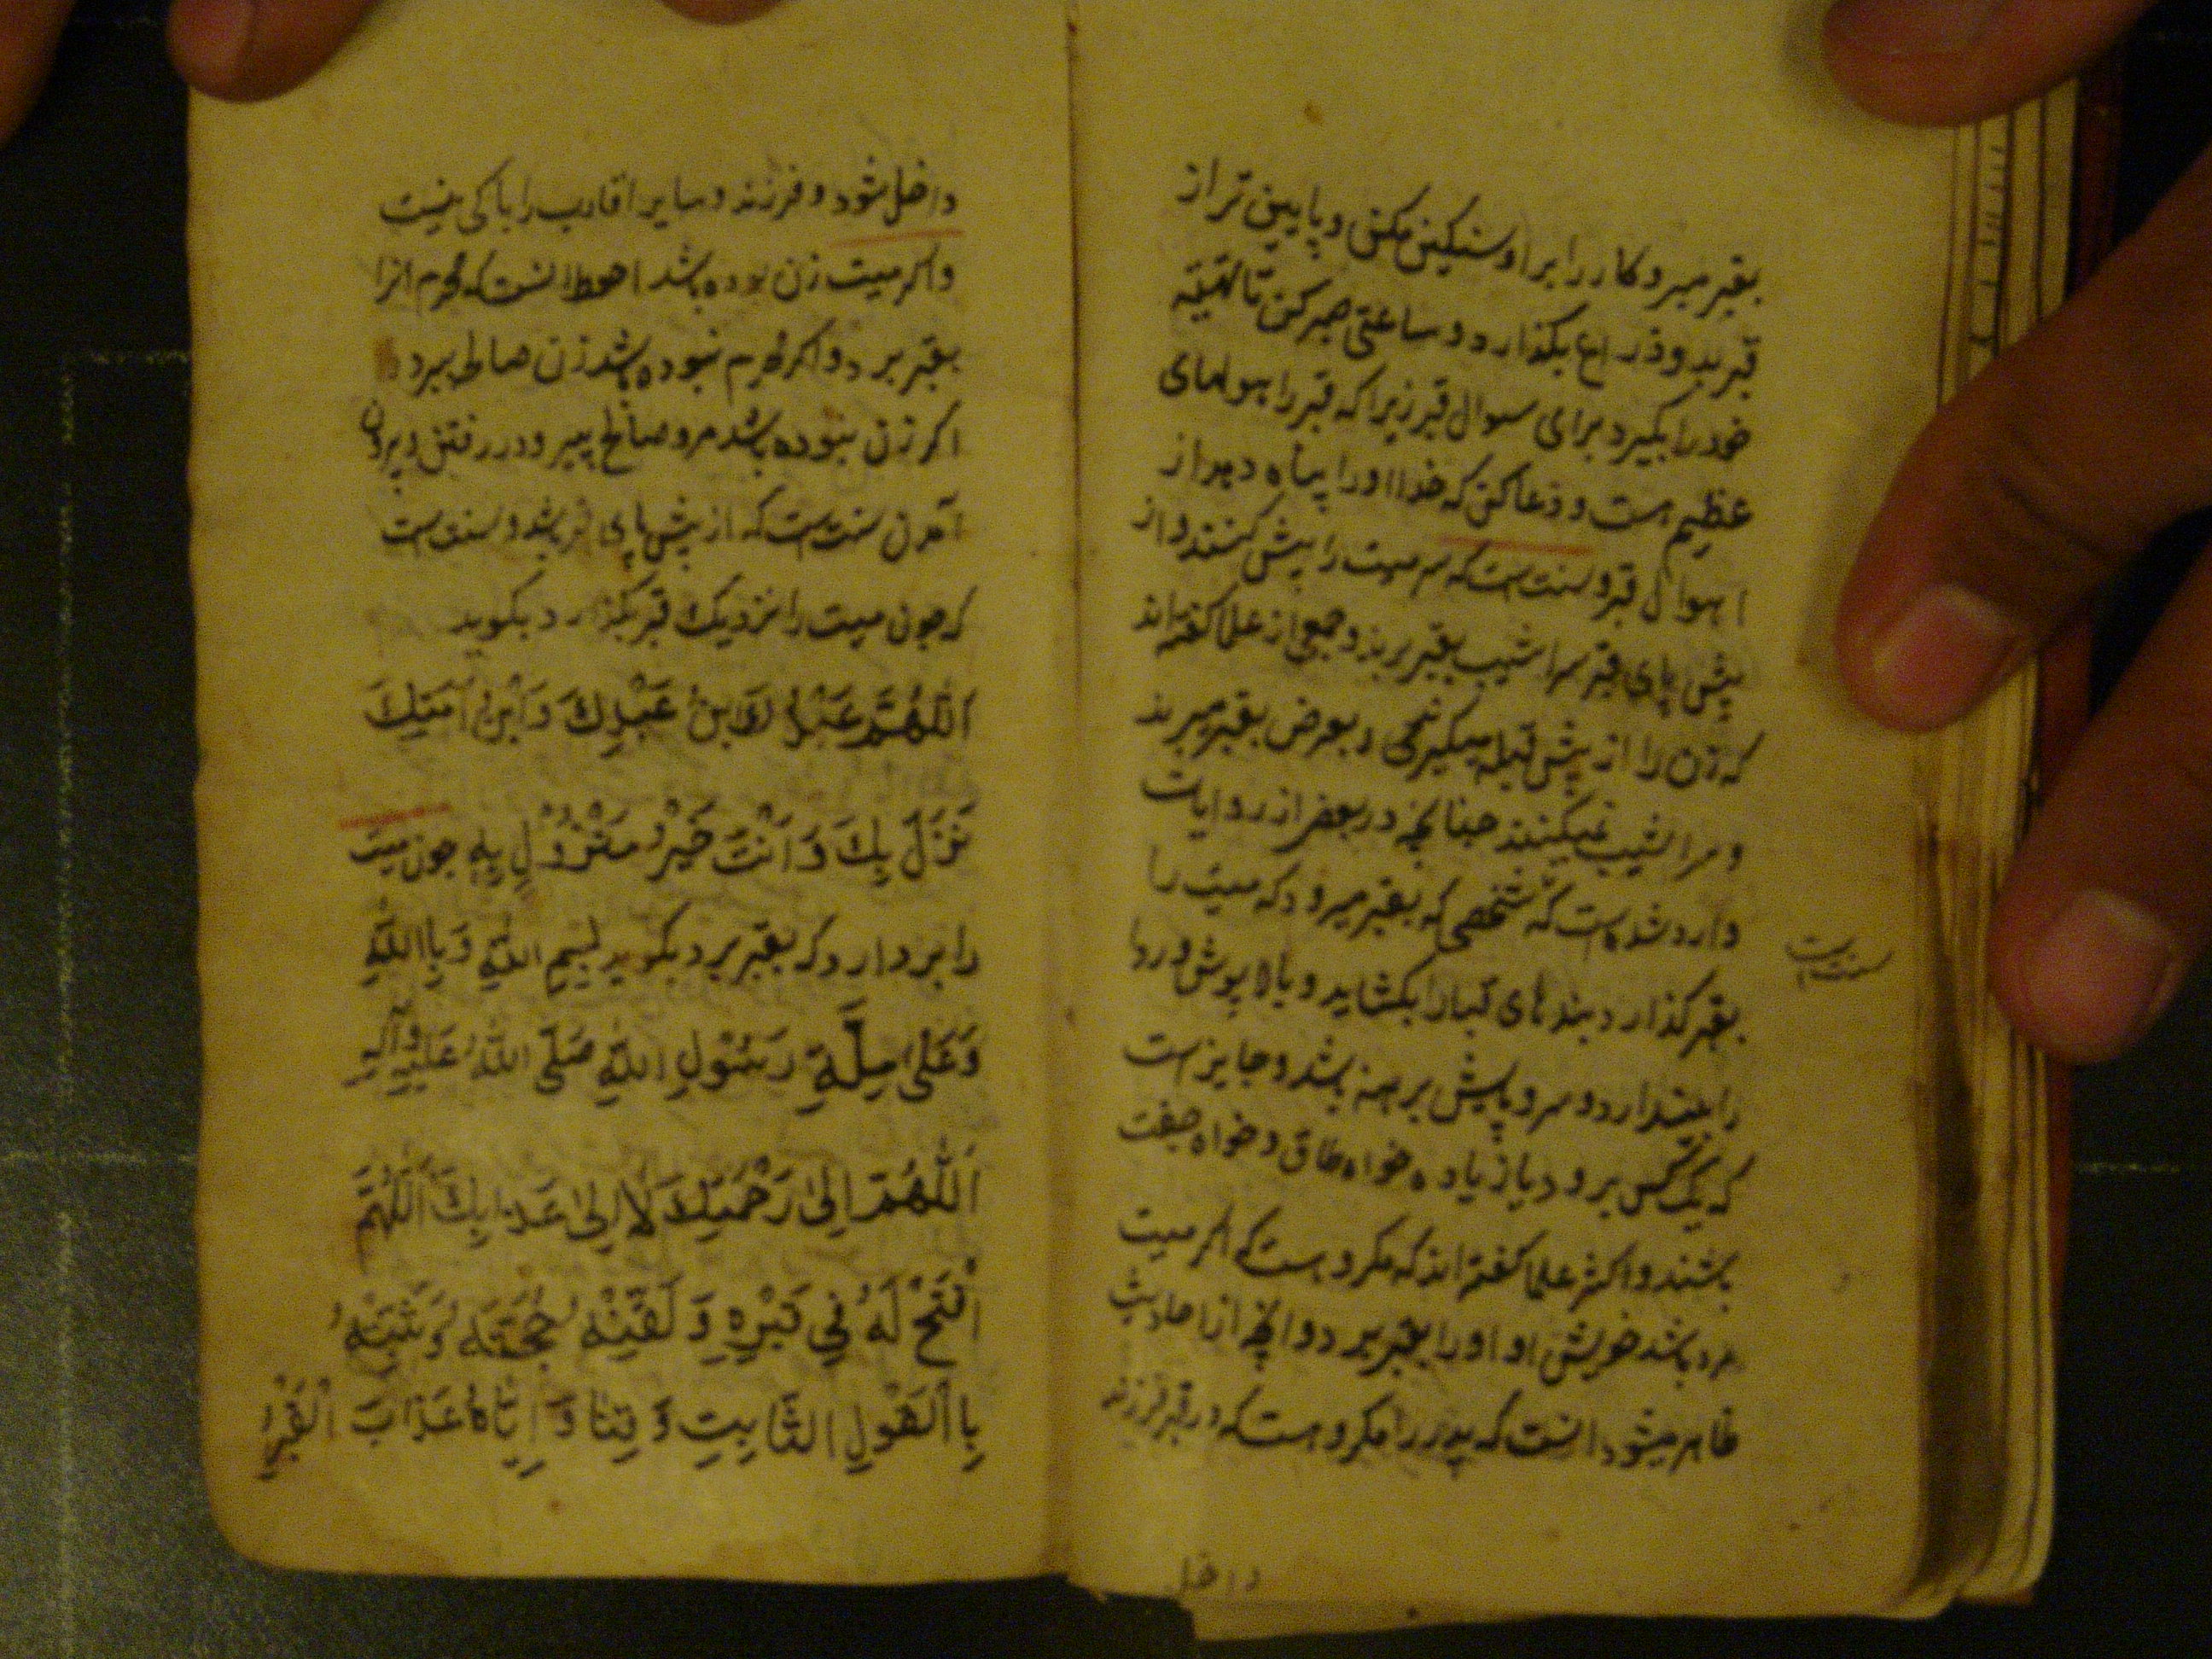 بقبر میرو کار را بر او سنکین مکن و پایین تر از
قبر بدو ذراع بکذارد و ساعتی صبر کن تا تهیّه
خود را بکیرد برای سوال قبر زیرا که قبر را هولهای
عظیم هست و دعا کن که خدا او را پناه دهد از
اهوال قبر و سنت است که سر میت را پیش کنند و از
پیش پای قبر سراشیب بقبر برند و جمعی از علما کفته‌اند
که زن را از پیش قبله میکیرند و بعرض بقبر میبرند
و سراشیب نمیکنند چنانچه در بعضی از روایات
وارد شده است که شخصی که بقبر میرود که میت را
سنت است
بقبر کذارد بندهای قبا را بکشاید و بالاپوش و ردا
را بیندازد و سر و پایش برهنه باشد و جایز است
که یک کس برود یا زیاده خواه طاق و خواه جفت
باشند و اکثر علما کفته‌اند که مکروهست که اکر میت
مرد باشد خویش او او را بقبر برد و آنچه از احادیث
ظاهر میشود آنست که پدر را مکروهست که در قبر فرزند
داخل
داخل شود و فرزند و سایر اقارب را باکی نیست
و اکر میت زن بوده باشد احوط انست که محرم انرا
بقبر برد و اکر محرم نبوده باشد زن صالحه ببرد و
اکر زن نبوده باشد مرد صالح پیر و در رفتن و بیرون
آمدن سنت است که از پیش پای قبر باشد و سنت است
که چون میت را نزدیک قبر بکذارد بکوید
اَللّٰهُمَّ عَبْدُكَ ابْنُ عَبْدِكَ وَابْنُ اَمَتِكَ
نَزَلَ بِكَ وَ اَنْتَ خَيْرُ مَنْزُوْلٍ بِهِ چون میت
را بردارد که بقبر برد بکوید بِسْمِ اللّٰهِ وَ بِااللّٰهِ
وَعَلٰى مِلَّةِ رَسُوْلِ اللّٰهِ صَلَّى اللّٰهُ عَلَيْهِ وَآلِهِ
اَللّٰهُمَّ اِلٰى رَحْمَتِكَ لَا اِلٰى عَذَابِكَ اَللّٰهُمَّ
افْتَحْ لَهُ فِي قَبْرِهِ وَ لَقِّنْهُ حُجَّتَهُ وَ ثَبِّتْهُ
بِاالْقَوْلِ الثَّابِتِ وَ قِنَا وَ اِيَّاهُ عَذَابَ الْقَبْرِ